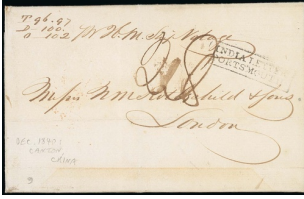 P. 96. 97
D - 100.
O - 102
P H. M. S.
INDIA LETTER
PORTSMOUTH
28
Messrs N M Rothschild & Sons.
London
DEC. 1840
CANTON
CHINA
9